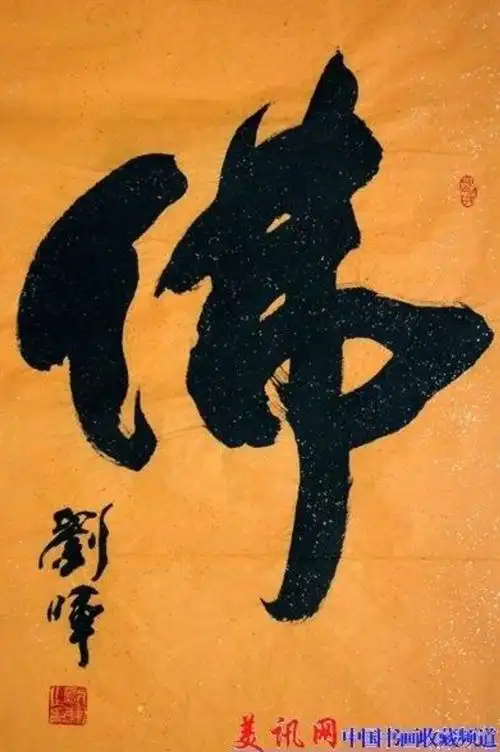 佛
劉暉
美讯网 中国书画收藏频道